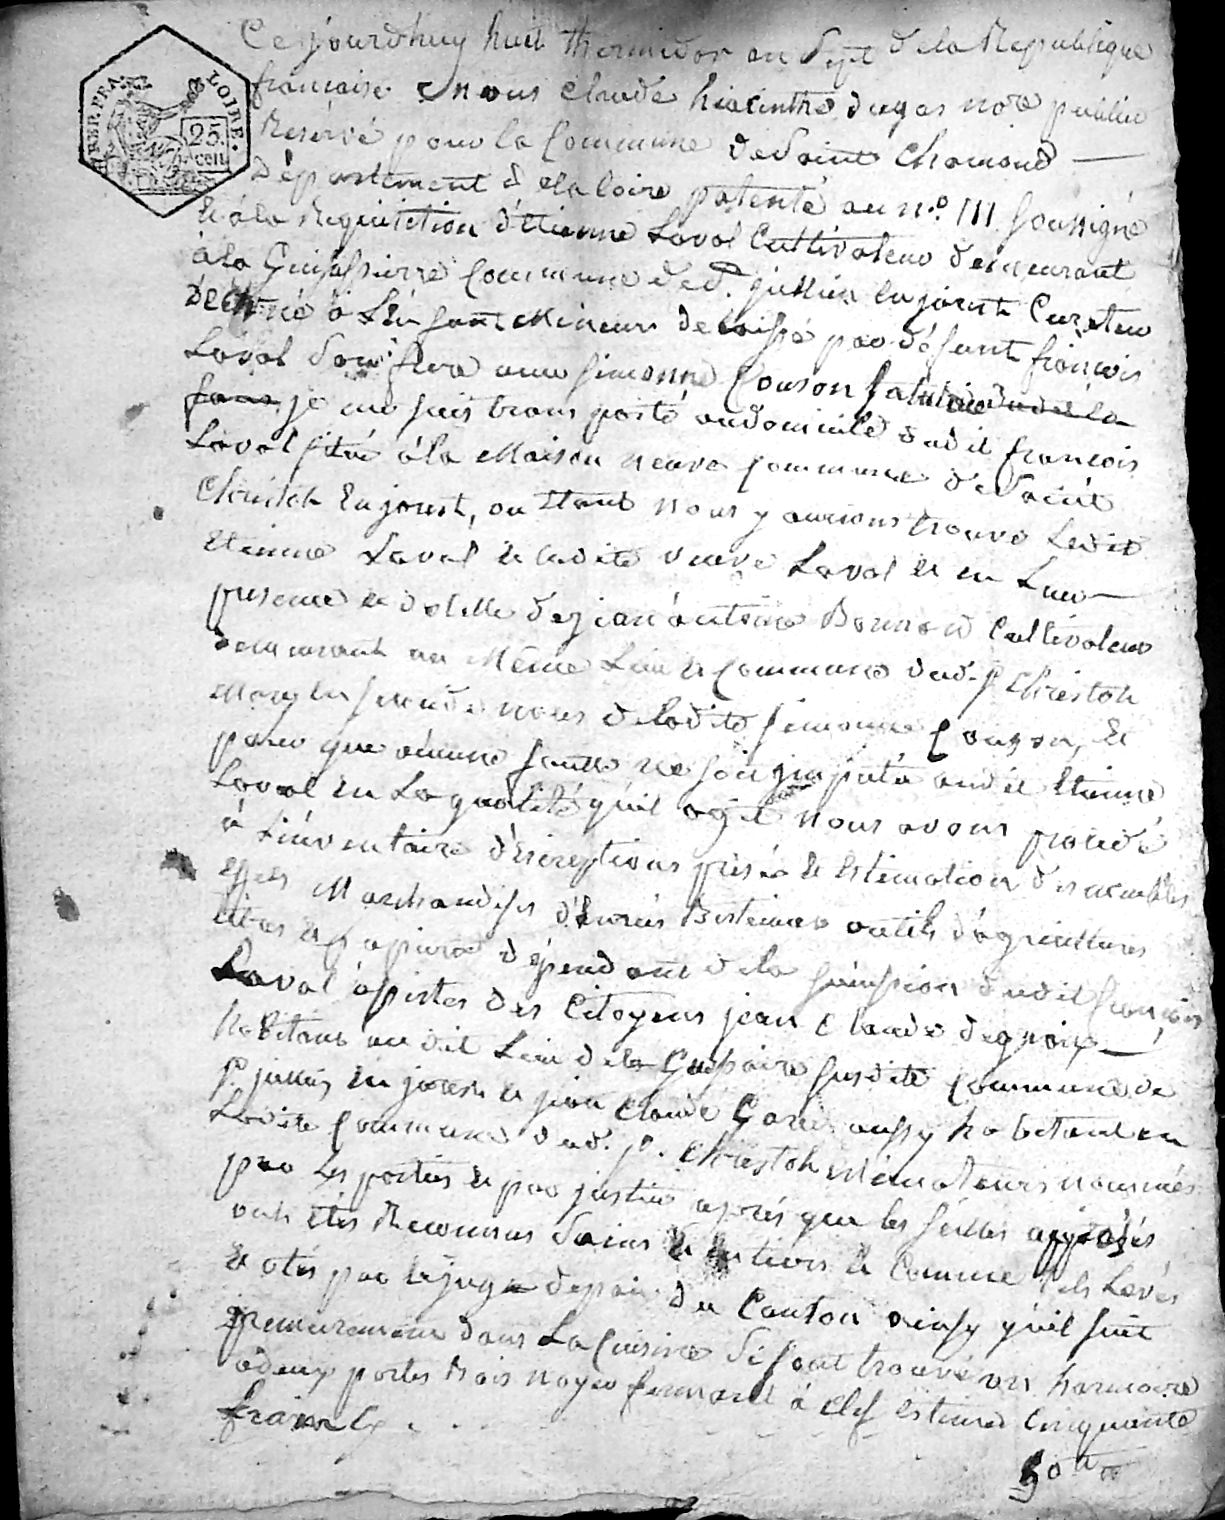 Ce jourdhuy huit thermidor an Sept de la Republique
francaise Nous Claude hiacinthe dugas no.re public
Reservé pour la Commune de Saint Chamond
REP. FRA. LOIRE.
25 cent
Département de la loire patenté au n.o 111 soussigné
Et à la Requisition d'Etienne Laval Cultivateur demeurant
à la commune de d. jullien en jarest Curateur
décerné à L'enfant Mineur delaissé par défunt françois
Laval Son frere avec simonne Couson
je me suis transporté au domicile dudit françois
Laval situé à la Maison neuve commune de Saint
Christoh En jarest, ou Etant nous y aurions trouvé Ledit
Etienne Laval et ladite veuve Laval et en Leur
presence et d'elle de jean antoine Bonnard Cultivateur
demeurant au Même Lieu et Commune dud. st Christoh
Mary en seconde noces de ladite simonne Couzon, Et
pour que aucune faute ne soit imputée audit Etienne
Laval en La qualité qu'il agit nous avons procédé
à L'inventaire déscriptions prisée et Estimation des meubles
effets Marchandises denrées Bestiaux outils d'agricultures
titres et papiers dépendant de la succession dudit françois
Laval assistes des Citoyens jean Claude
habitant au dit Lieu de la susdite Commune de
st. jullien en jarest et jean Claude aussy habitant en
Ladite Commune dud. st. Christoh Estimateurs nommés
par Les parties et par justice après que les scellés apposés
ont étés Reconnus Sains et entiers et Comme tels Levés
et otés par le juge de paix du Canton ainsy qu'il suit
premierement dans La Cuisine Se sont trouvé un harmoire
à deux portes Bois noyer fermant à clef Estimé Cinquante
francs Cy . . .
50